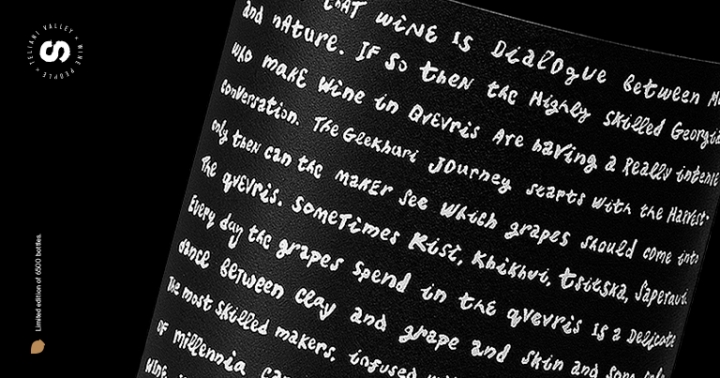 TELIANI VALLEY • WINE PEOPLE •
Limited edition of 6500 bottles.
that wine is Dialogue between
and nature. If so then the Highly skilled
who make wine in Qvevris are having a Really intense
conversation. The Geekhuri Journey starts with the Harvest-
only then can the maker see which grapes should come into
The qvevris. sometimes Kisi, Khikhvi, tsitska, saperavi.
Every day the grapes spend in the qvevris is a Delicate
dance between clay and grape and skin and
The most skilled makers, infused
of millennia
wine